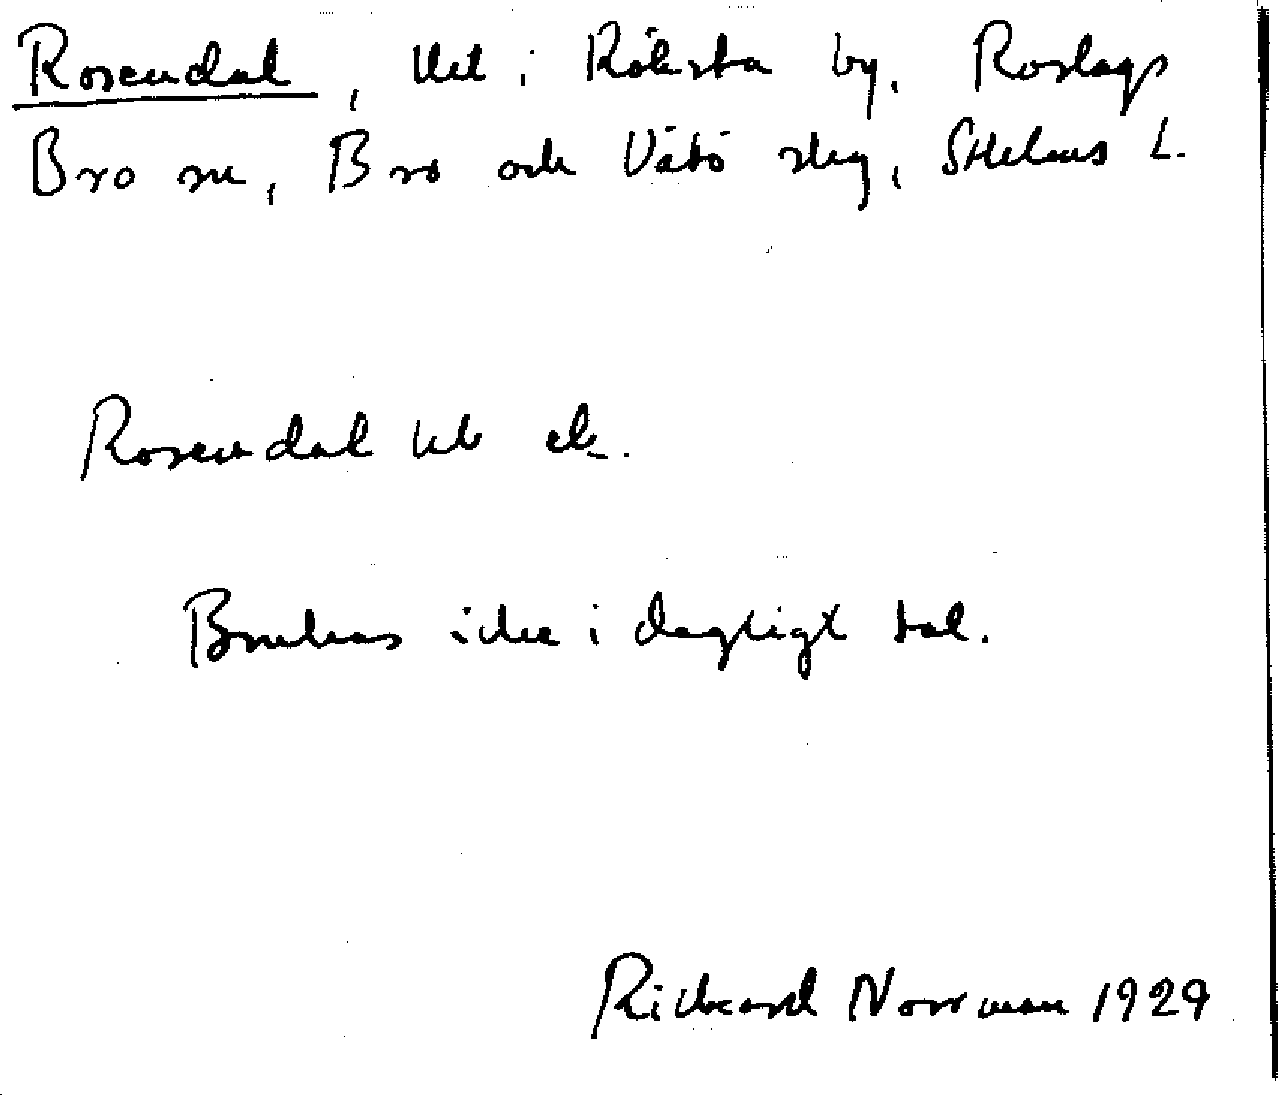 Rosendal, lht i Röksta by, Roslags
Bro sn, Bro och Vätö skg, Sthlms L.
Rosendal lht ek.
Brukas icke i dagligt tal.
Rickard Norrman 1929